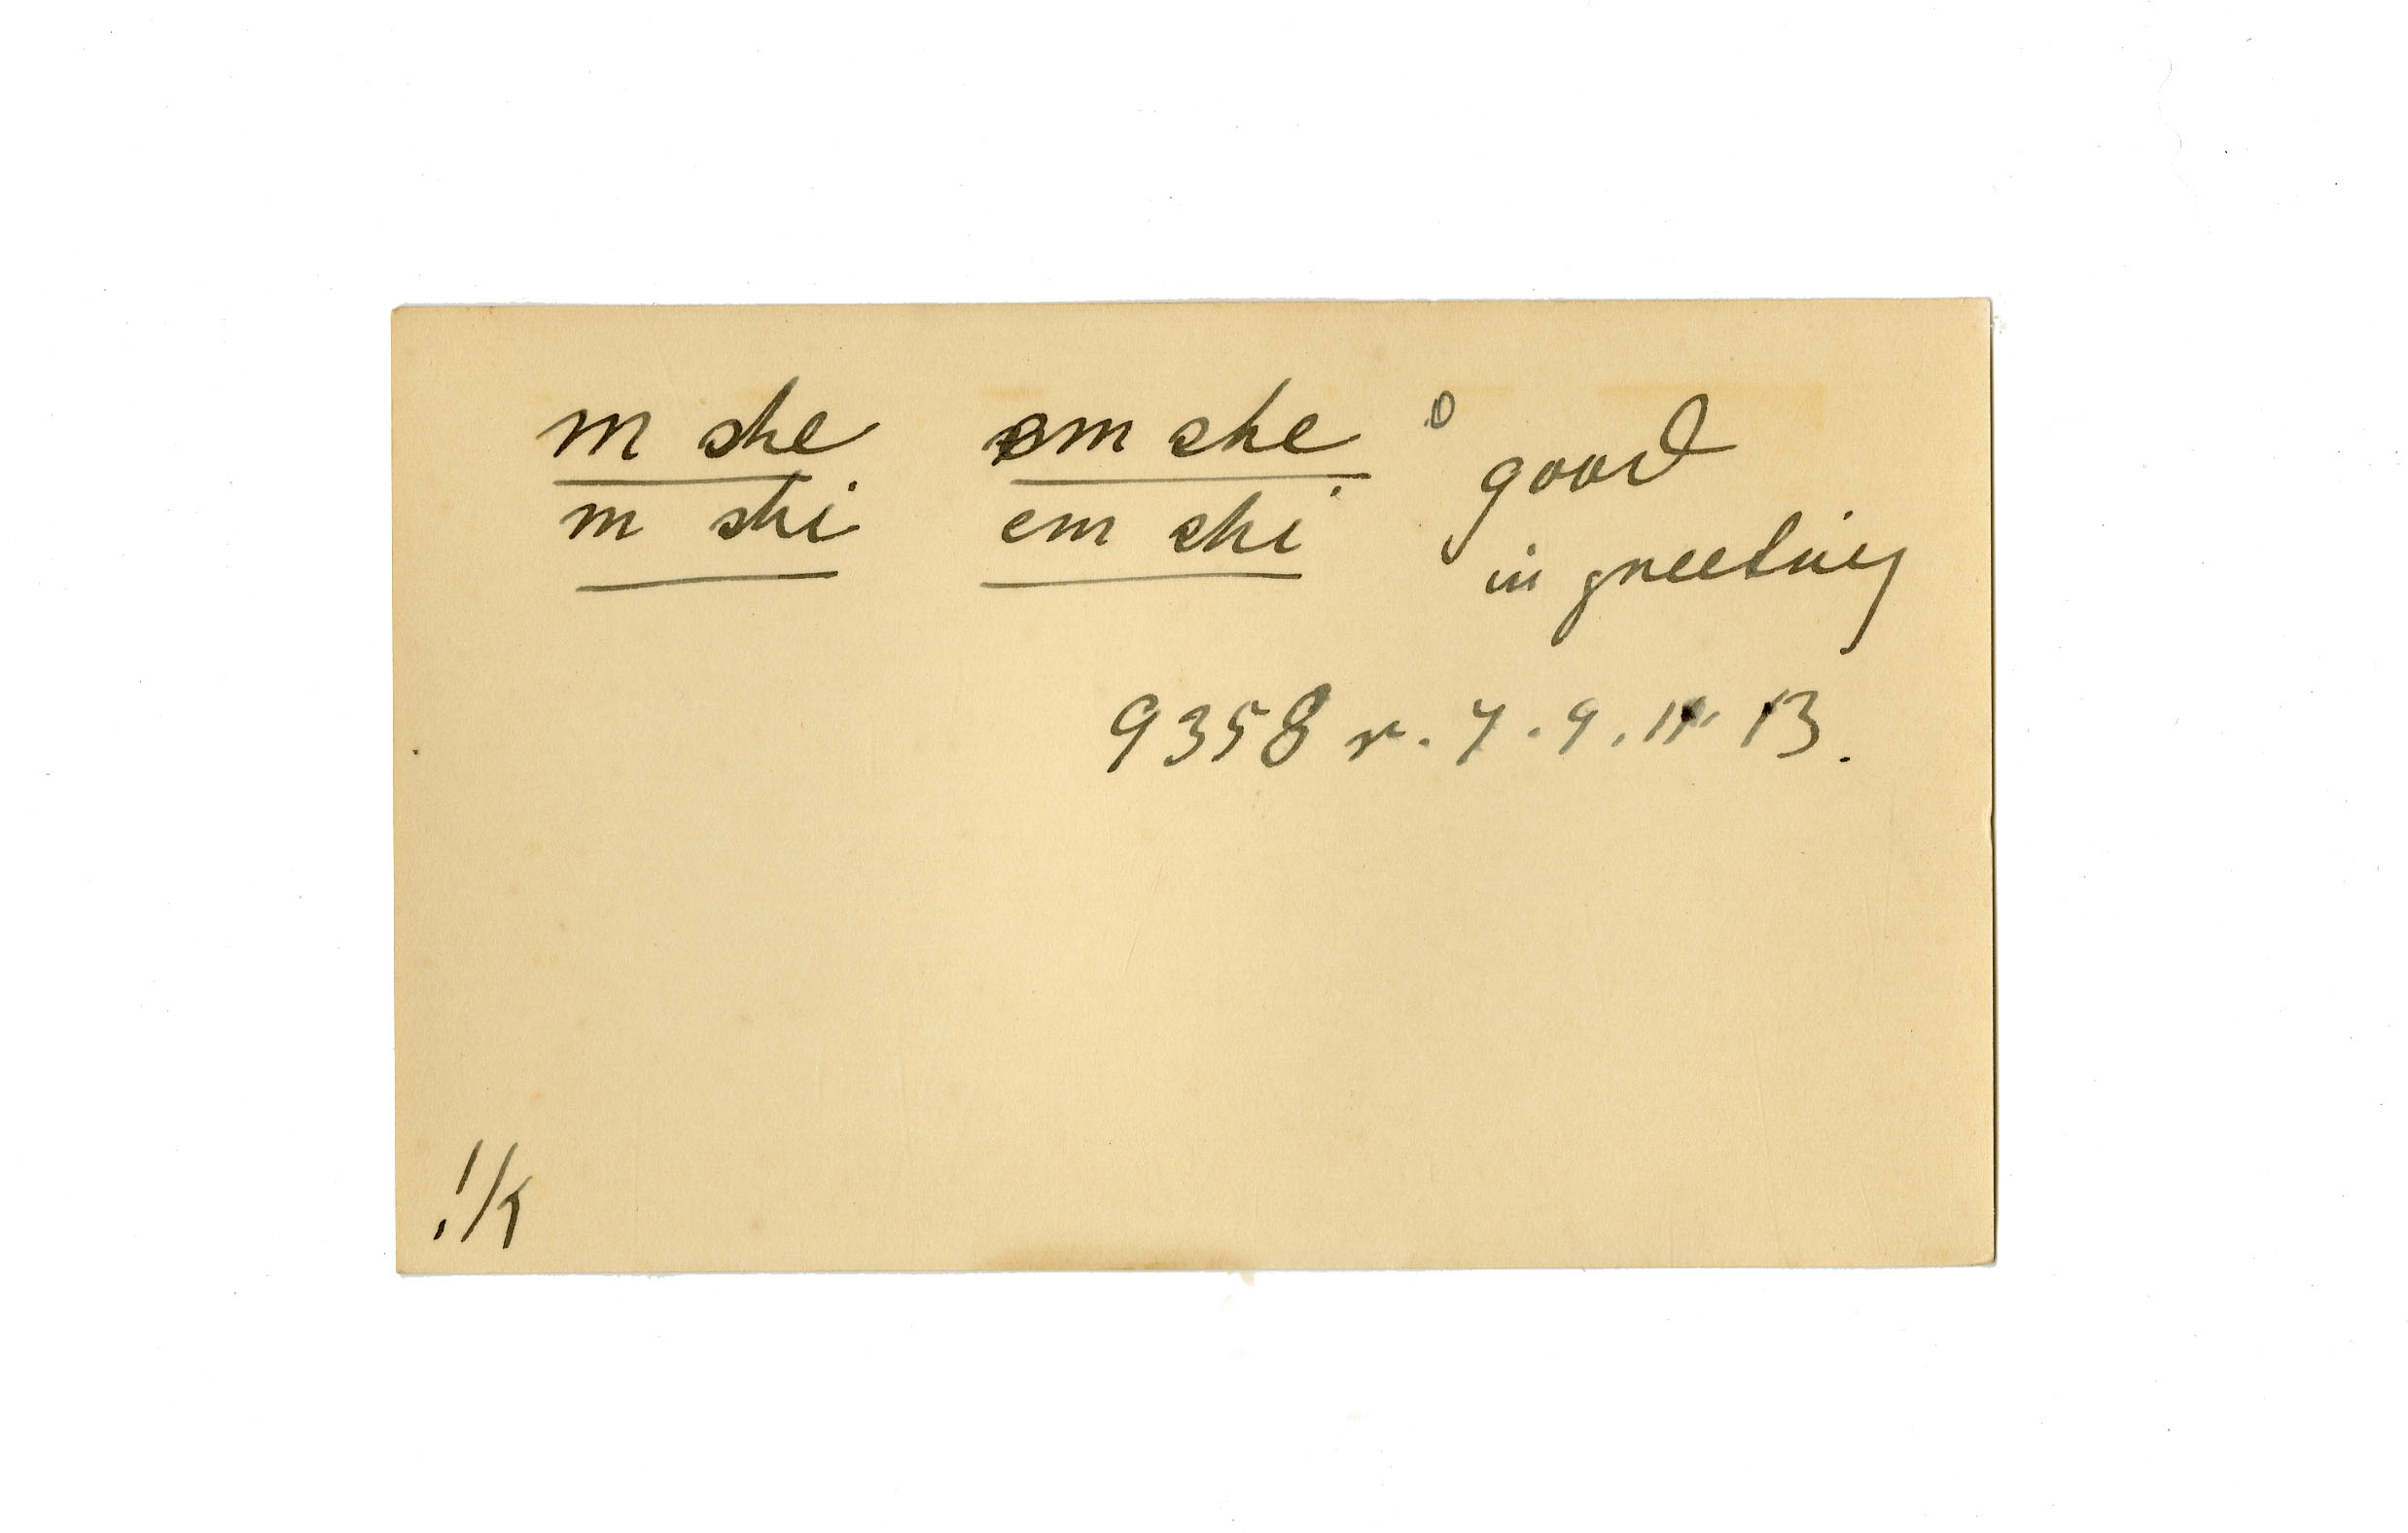 m she em she good
m shi em shi in greeting
9358 r. 7. 9. 11. 13.
!k